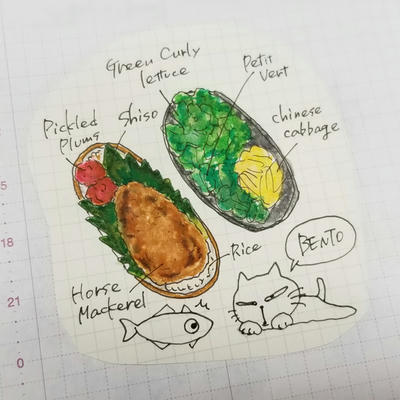 Green Curly
lettuce
Petit
Vert
Pickled
Plums
Shiso
chinese
cabbage
Rice
BENTO
Horse
Mackerel
5
18
21
0